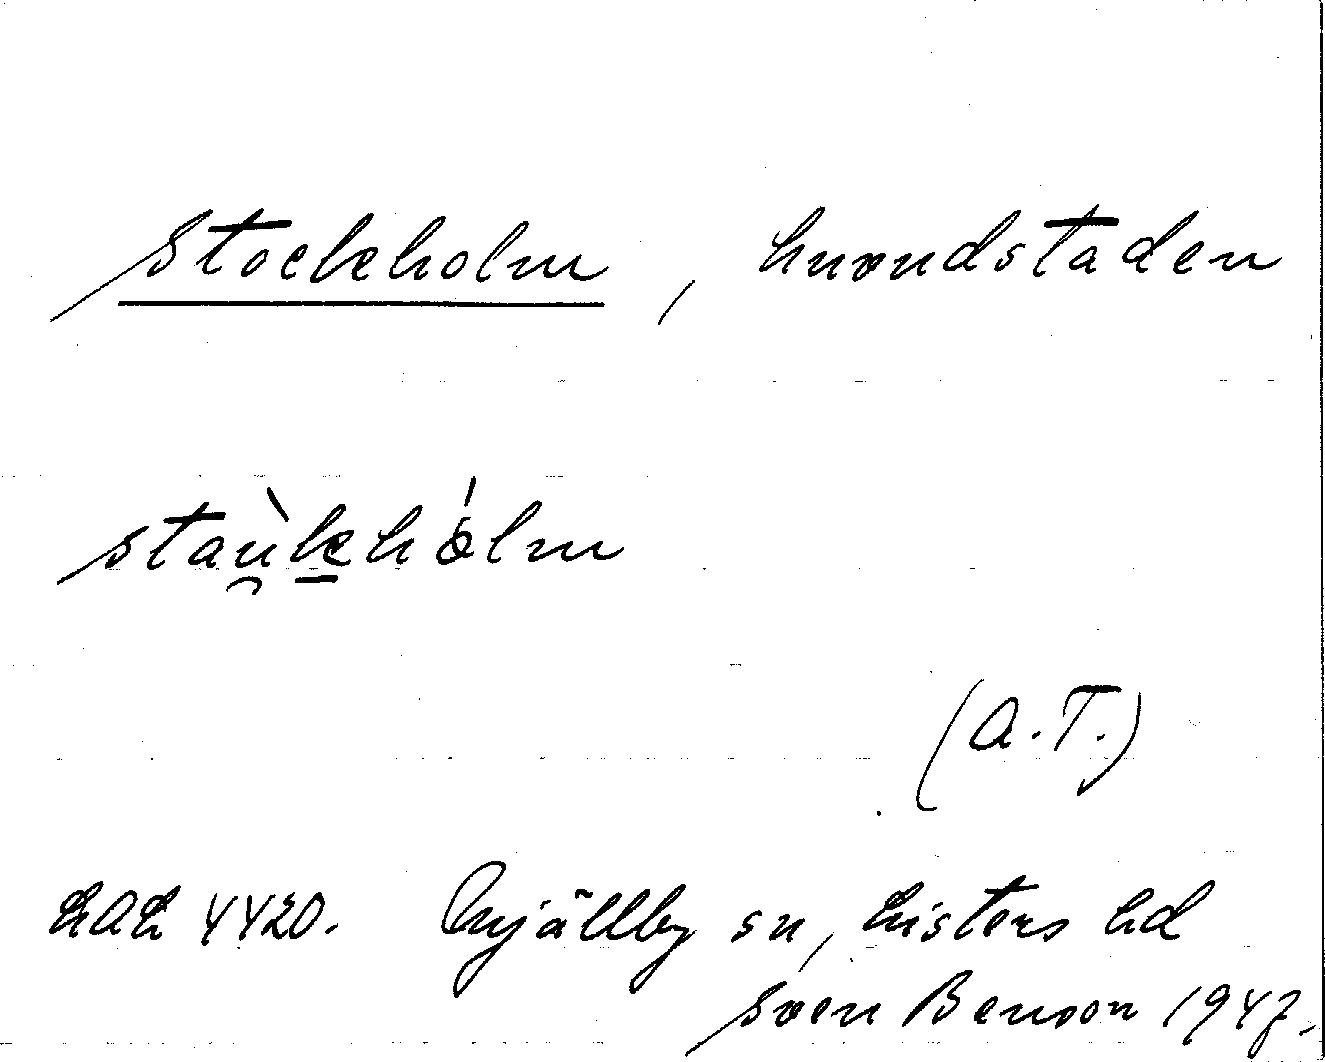 Stockholm, huvudstaden
stau̯khólm
(A.T.)
LAL 4420. Mjällby sn, Listers hd
Sven Benson 1947.